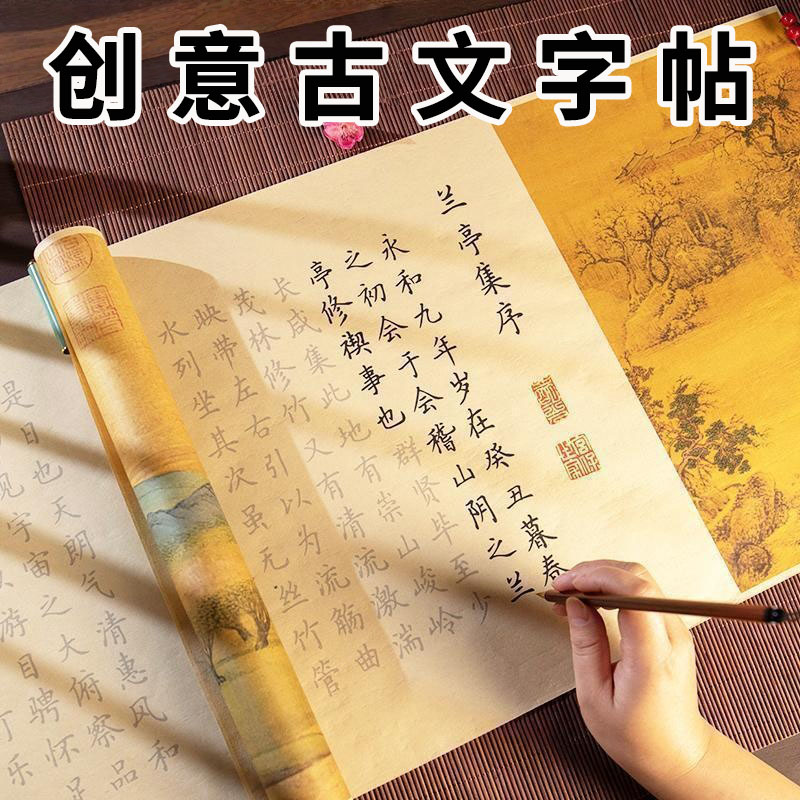 创意古文字帖
兰亭集序
永和九年岁在癸丑暮春
之初会于会稽山阴之兰
亭修禊事也群贤毕至少
长咸集此地有崇山峻岭
茂林修竹又有清流激湍
映带左右引以为流觞曲
水列坐其次虽无丝竹管
是日也天朗气清惠风和
见宇宙之大俯察品
游目骋怀足
乐